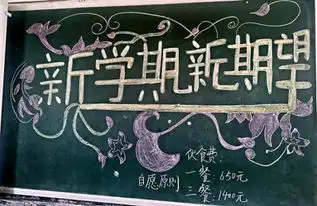 新学期新期望
伙食费:
一餐:650元
自愿原则
三餐:1400元